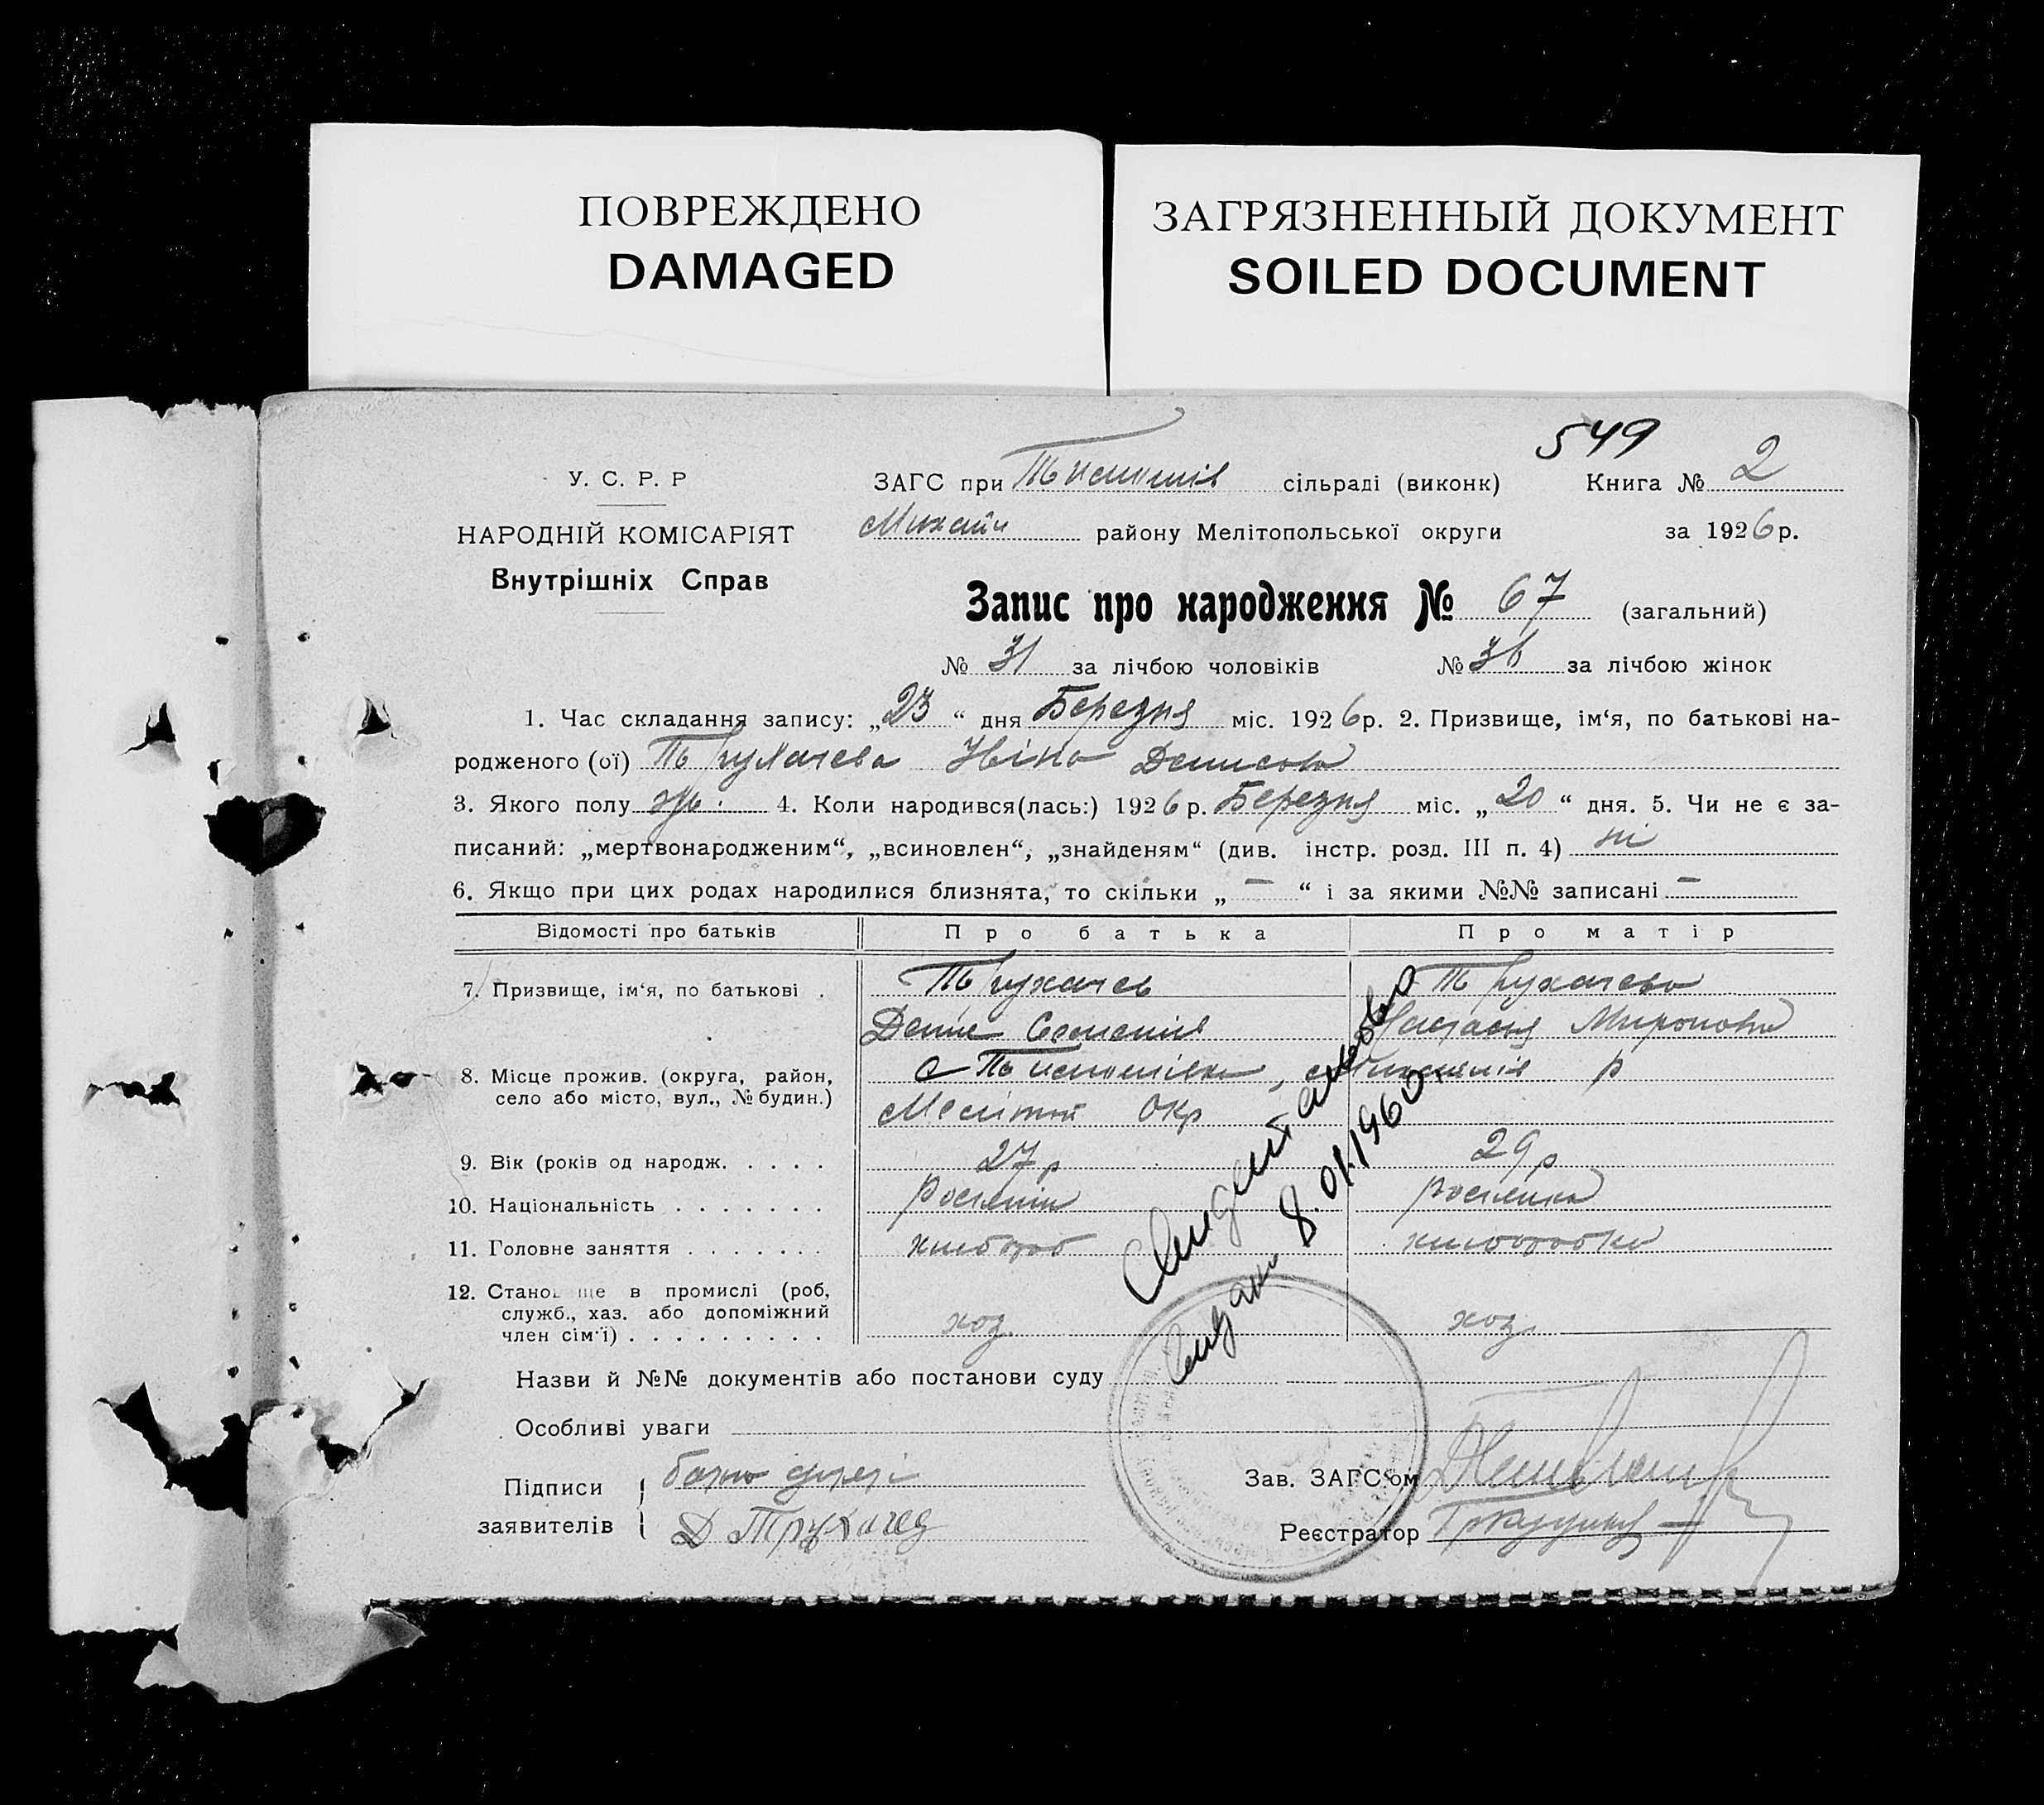 ПОВРЕЖДЕНО
DAMAGED
ЗАГРЯЗНЕННЫЙ ДОКУМЕНТ
SOILED DOCUMENT
549
У. С. Р. Р
НАРОДНІЙ КОМІСАРІЯТ
Внутрішніх Справ
ЗАГС при сільраді (виконк) Книга № 2
Михайл району Мелітопольської округи за 1926 р.
Запис про народження № 67 (загальний)
№ 31 за лічбою чоловіків № 36 за лічбою жінок
1. Час складання запису: „23“ дня Березня міс. 1926 р. 2. Призвище, ім‘я, по батькові на-
родженого (ої) Трухачева Ніна Денисова
3. Якого полу жін. 4. Коли народився(лась:) 1926 р. Березня міс. „20“ дня. 5. Чи не є за-
писаний: „мертвонародженим“, „всиновлен“, „знайденям“ (див. інстр. розд. III п. 4) ні
6. Якщо при цих родах народилися близнята, то скільки „ – “ і за якими №№ записані –
Відомості про батьків Про батька Про матір
7. Призвище, ім‘я, по батькові . Трухачев Трухачева
Денис Семенів Настася Миронова
8. Місце прожив. (округа, район,
село або місто, вул., № будин.)
Меліт Окр
9. Вік (років од народж. . . . . 27 р 29 р
10. Національність . . . . . . . Росіянін Росіянка
11. Головне заняття . . . . . . . хлібороб хліборобка
12. Становище в промислі (роб,
служб., хаз. або допоміжний
член сім‘ї) . . . . . . . . . хоз. хоз.
8.01.1960
Назви й №№ документів або постанови суду
Особливі уваги
Підписи
заявителів Д Трухачев
Зав. ЗАГС‘ом
Реєстратор